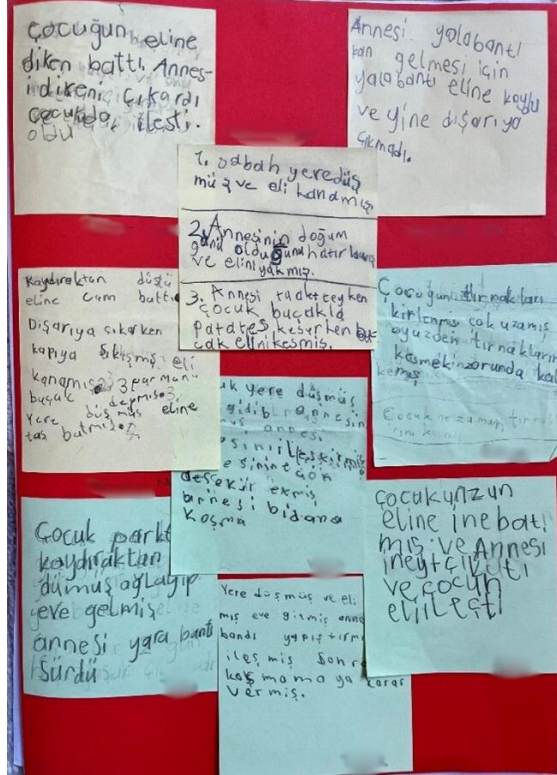 Çocuğun eline
diken battı. Annes-
i dikeni çıkardı
çocukda, ileşti.
oldu
Annesi yalabantı
kan gelmesi için
yalabantı eline koydu
ve yine dışarıya
çıkmadı.
1. sabah yere düş
müş ve eli kanamış
2. Annesinin doğum
günü olduğunu hatırlamış
ve elini yakmış.
3. Annesi tadeteyken
çocuk buçakla
patates keserken bu-
çak elini kesmiş.
Kaydıraktan düştü
eline cam battı.
Dışarıya çıkarken
kapıya sıkışmış eli
kanamış 3 parmanı
buçak depmiş
yere düşmüş eline
taş batmış.
Çocuğun tırnakları
kirlenmiş çok uzamış
oyüzden tırnakların
kesmek zorunda kal
kemiş
uk yere düşmüş
annesi
deşekür etmiş
annesi bidana
koşma
Çocuk parkt
kaydıraktan
dümuş ağlayıp
eve gelmiş
annesi yara bantı
sürdü
yere düşmüş ve eli
mış eve gitmiş anne
bandı yapıştırm
ileşmiş sonra
koşmamaya karar
vermiş.
çocukunzun
eline ine batı
mış ve Annesi
ineyi çıkıtı
ve çocun
eli ileşti